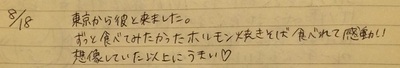 8/18 東京から彼と来ました。
ずっと食べてみたかったホルモン焼きそば 食べれて感動!!
想像していた以上にうまい♡